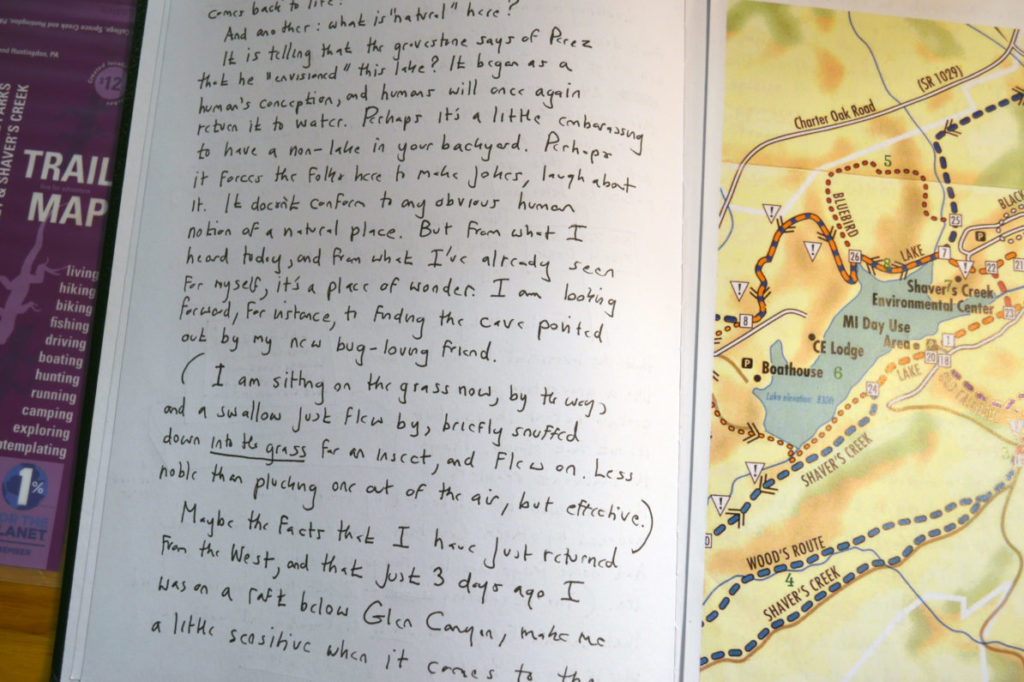 College, Spruce Creek and Huntingdon
and Huntingdon, PA
$12
& SHAVER'S CREEK
TRAIL
MAP
living
hiking
biking
fishing
driving
boating
hunting
running
camping
exploring
templating
1%
FOR THE
PLANET
comes back to life?
And another: what is "natural" here?
It is telling that the gravestone says of Perez
that he "envisioned" this lake? It began as a
human's conception, and humans will once again
return it to water. Perhaps it's a little embarassing
to have a non-lake in your backyard. Perhaps
it forces the folks here to make jokes, laugh about
it. It doesn't conform to any obvious human
notion of a natural place. But from what I
heard today, and from what I've already seen
for myself, it's a place of wonder. I am looking
forward, for instance, to finding the cave pointed
out by my new bug-loving friend.
(I am sitting on the grass now, by the way,
and a swallow just flew by, briefly snuffed
down into the grass for an insect, and flew on. Less
noble than plucking one out of the air, but effective.)
Maybe the facts that I have just returned
from the West, and that just 3 days ago I
was on a raft below Glen Canyon, make me
a little sensitive when it comes to the
(SR 1029)
Charter Oak Road
5
BLUEBIRD
25
BLACK
P
26
LAKE
7
22
21
Shaver's Creek
Environmental Center
23
8
MI Day Use
Area
1
CE Lodge
20
18
LAKE
P
Boathouse
6
24
Lake elevation: 830ft
SHAVER'S CREEK
WOOD'S ROUTE
4
SHAVER'S CREEK